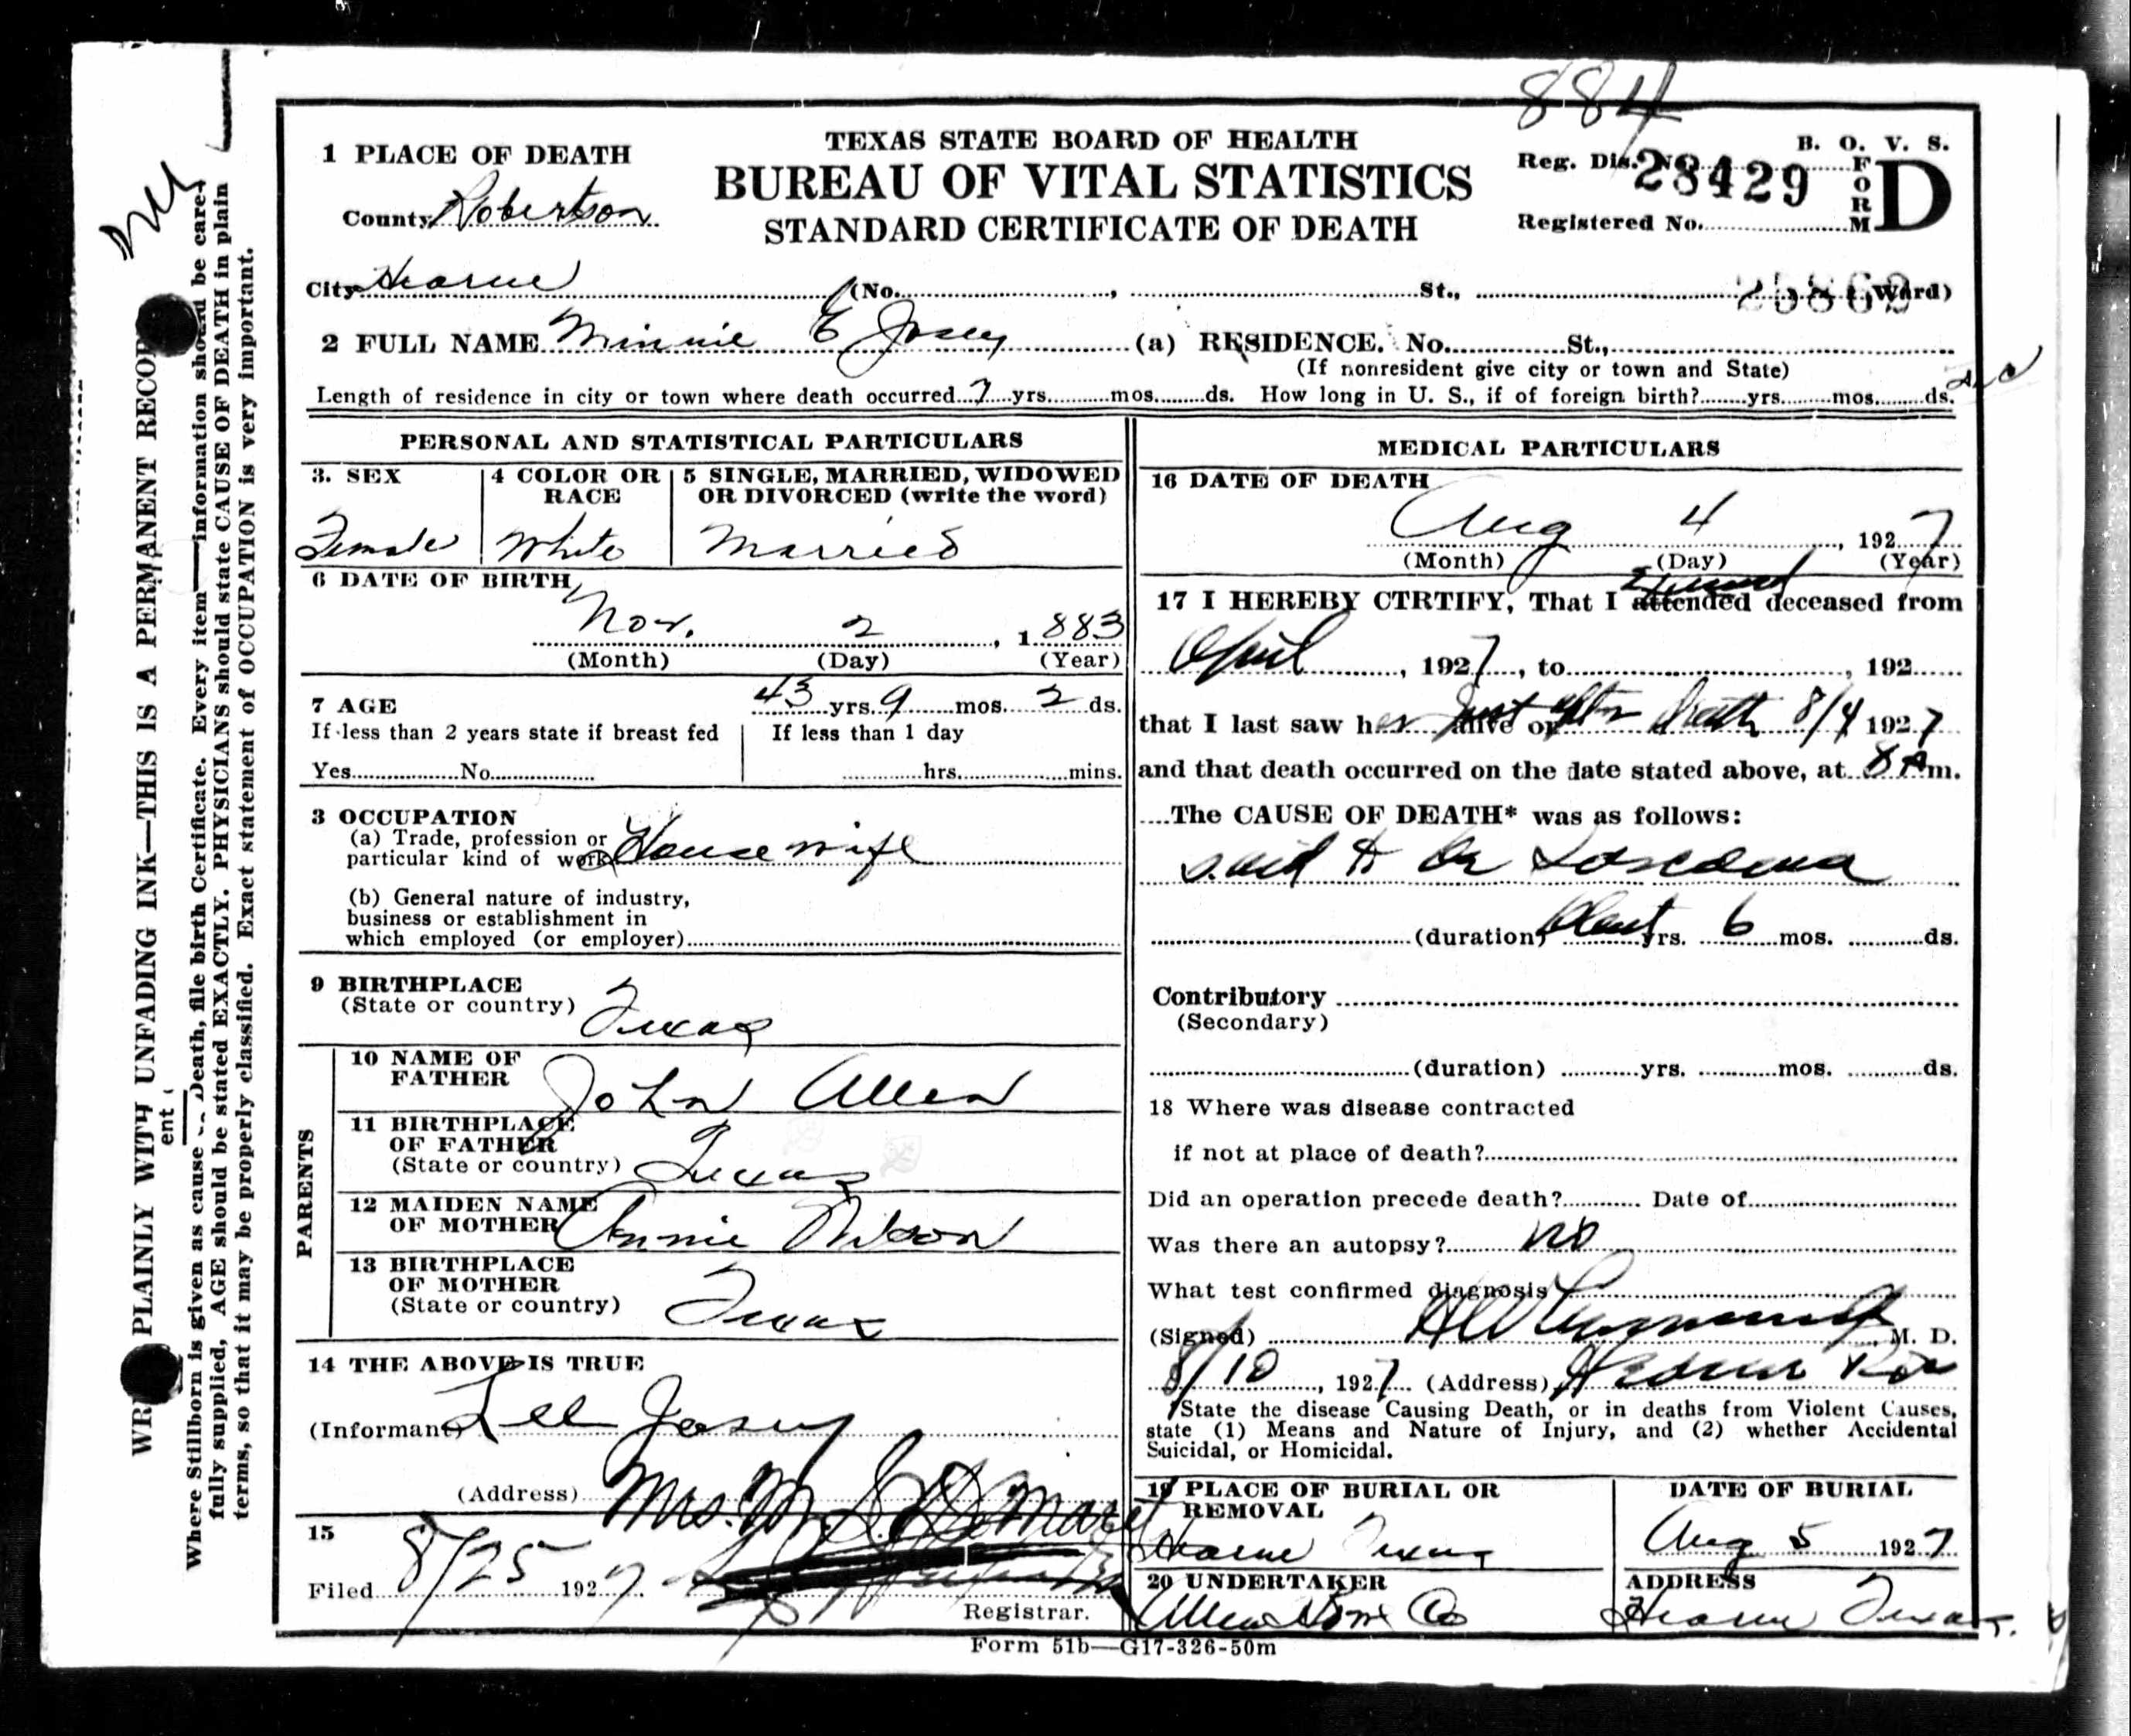 884
TEXAS STATE BOARD OF HEALTH
BUREAU OF VITAL STATISTICS
STANDARD CERTIFICATE OF DEATH
B. O. V. S.
FORM D
Reg. Dis. No. 28429
Registered No.
1 PLACE OF DEATH
County Robertson
City Hearne (No. , St., Ward)
2 FULL NAME Minnie E Josey (a) RESIDENCE. No. St.,
(If nonresident give city or town and State)
Length of residence in city or town where death occurred 7 yrs. mos. ds. How long in U. S., if of foreign birth? yrs. mos. ds.
PERSONAL AND STATISTICAL PARTICULARS
3. SEX
Female
4 COLOR OR RACE
White
5 SINGLE, MARRIED, WIDOWED
OR DIVORCED (write the word)
Married
6 DATE OF BIRTH
Nov. 2, 1883
(Month) (Day) (Year)
7 AGE 43 yrs. 9 mos. 2 ds.
If less than 2 years state if breast fed
Yes No
If less than 1 day
hrs. mins.
3 OCCUPATION
(a) Trade, profession or
particular kind of work House wife
(b) General nature of industry,
business or establishment in
which employed (or employer)
9 BIRTHPLACE
(State or country) Texas
PARENTS
10 NAME OF
FATHER John Allen
11 BIRTHPLACE
OF FATHER
(State or country) Texas
12 MAIDEN NAME
OF MOTHER Annie Wilson
13 BIRTHPLACE
OF MOTHER
(State or country) Texas
14 THE ABOVE IS TRUE
(Informant) Lee Josey
(Address)
15
Mrs. M.
Filed 8/25 1927
Registrar.
MEDICAL PARTICULARS
16 DATE OF DEATH
Aug 4, 1927
(Month) (Day) (Year)
17 I HEREBY CTRTIFY, That I attended deceased from
April, 1927, to , 192
that I last saw her just alive on after death 8/4 1927
and that death occurred on the date stated above, at 8 A m.
The CAUSE OF DEATH* was as follows:
said to be
(duration) yrs. 6 mos. ds.
Contributory
(Secondary)
(duration) yrs. mos. ds.
18 Where was disease contracted
if not at place of death?
Did an operation precede death? Date of
Was there an autopsy? no
What test confirmed diagnosis?
(Signed) , M. D.
8/10, 1927 (Address) Hearne
*State the disease Causing Death, or in deaths from Violent Causes,
state (1) Means and Nature of Injury, and (2) whether Accidental
Suicidal, or Homicidal.
19 PLACE OF BURIAL OR
REMOVAL
Hearne Texas
DATE OF BURIAL
Aug 5 1927
20 UNDERTAKER
Allen Co
ADDRESS
Hearne Texas.
Form 51b—G17-326-50m
WRITE PLAINLY WITH UNFADING INK—THIS IS A PERMANENT RECORD
Where Stillborn is given as cause Death, file birth Certificate. Every item information should be care-
fully supplied, AGE should be stated EXACTLY. PHYSICIANS should state CAUSE OF DEATH in plain
terms, so that it may be properly classified. Exact statement of OCCUPATION is very important.